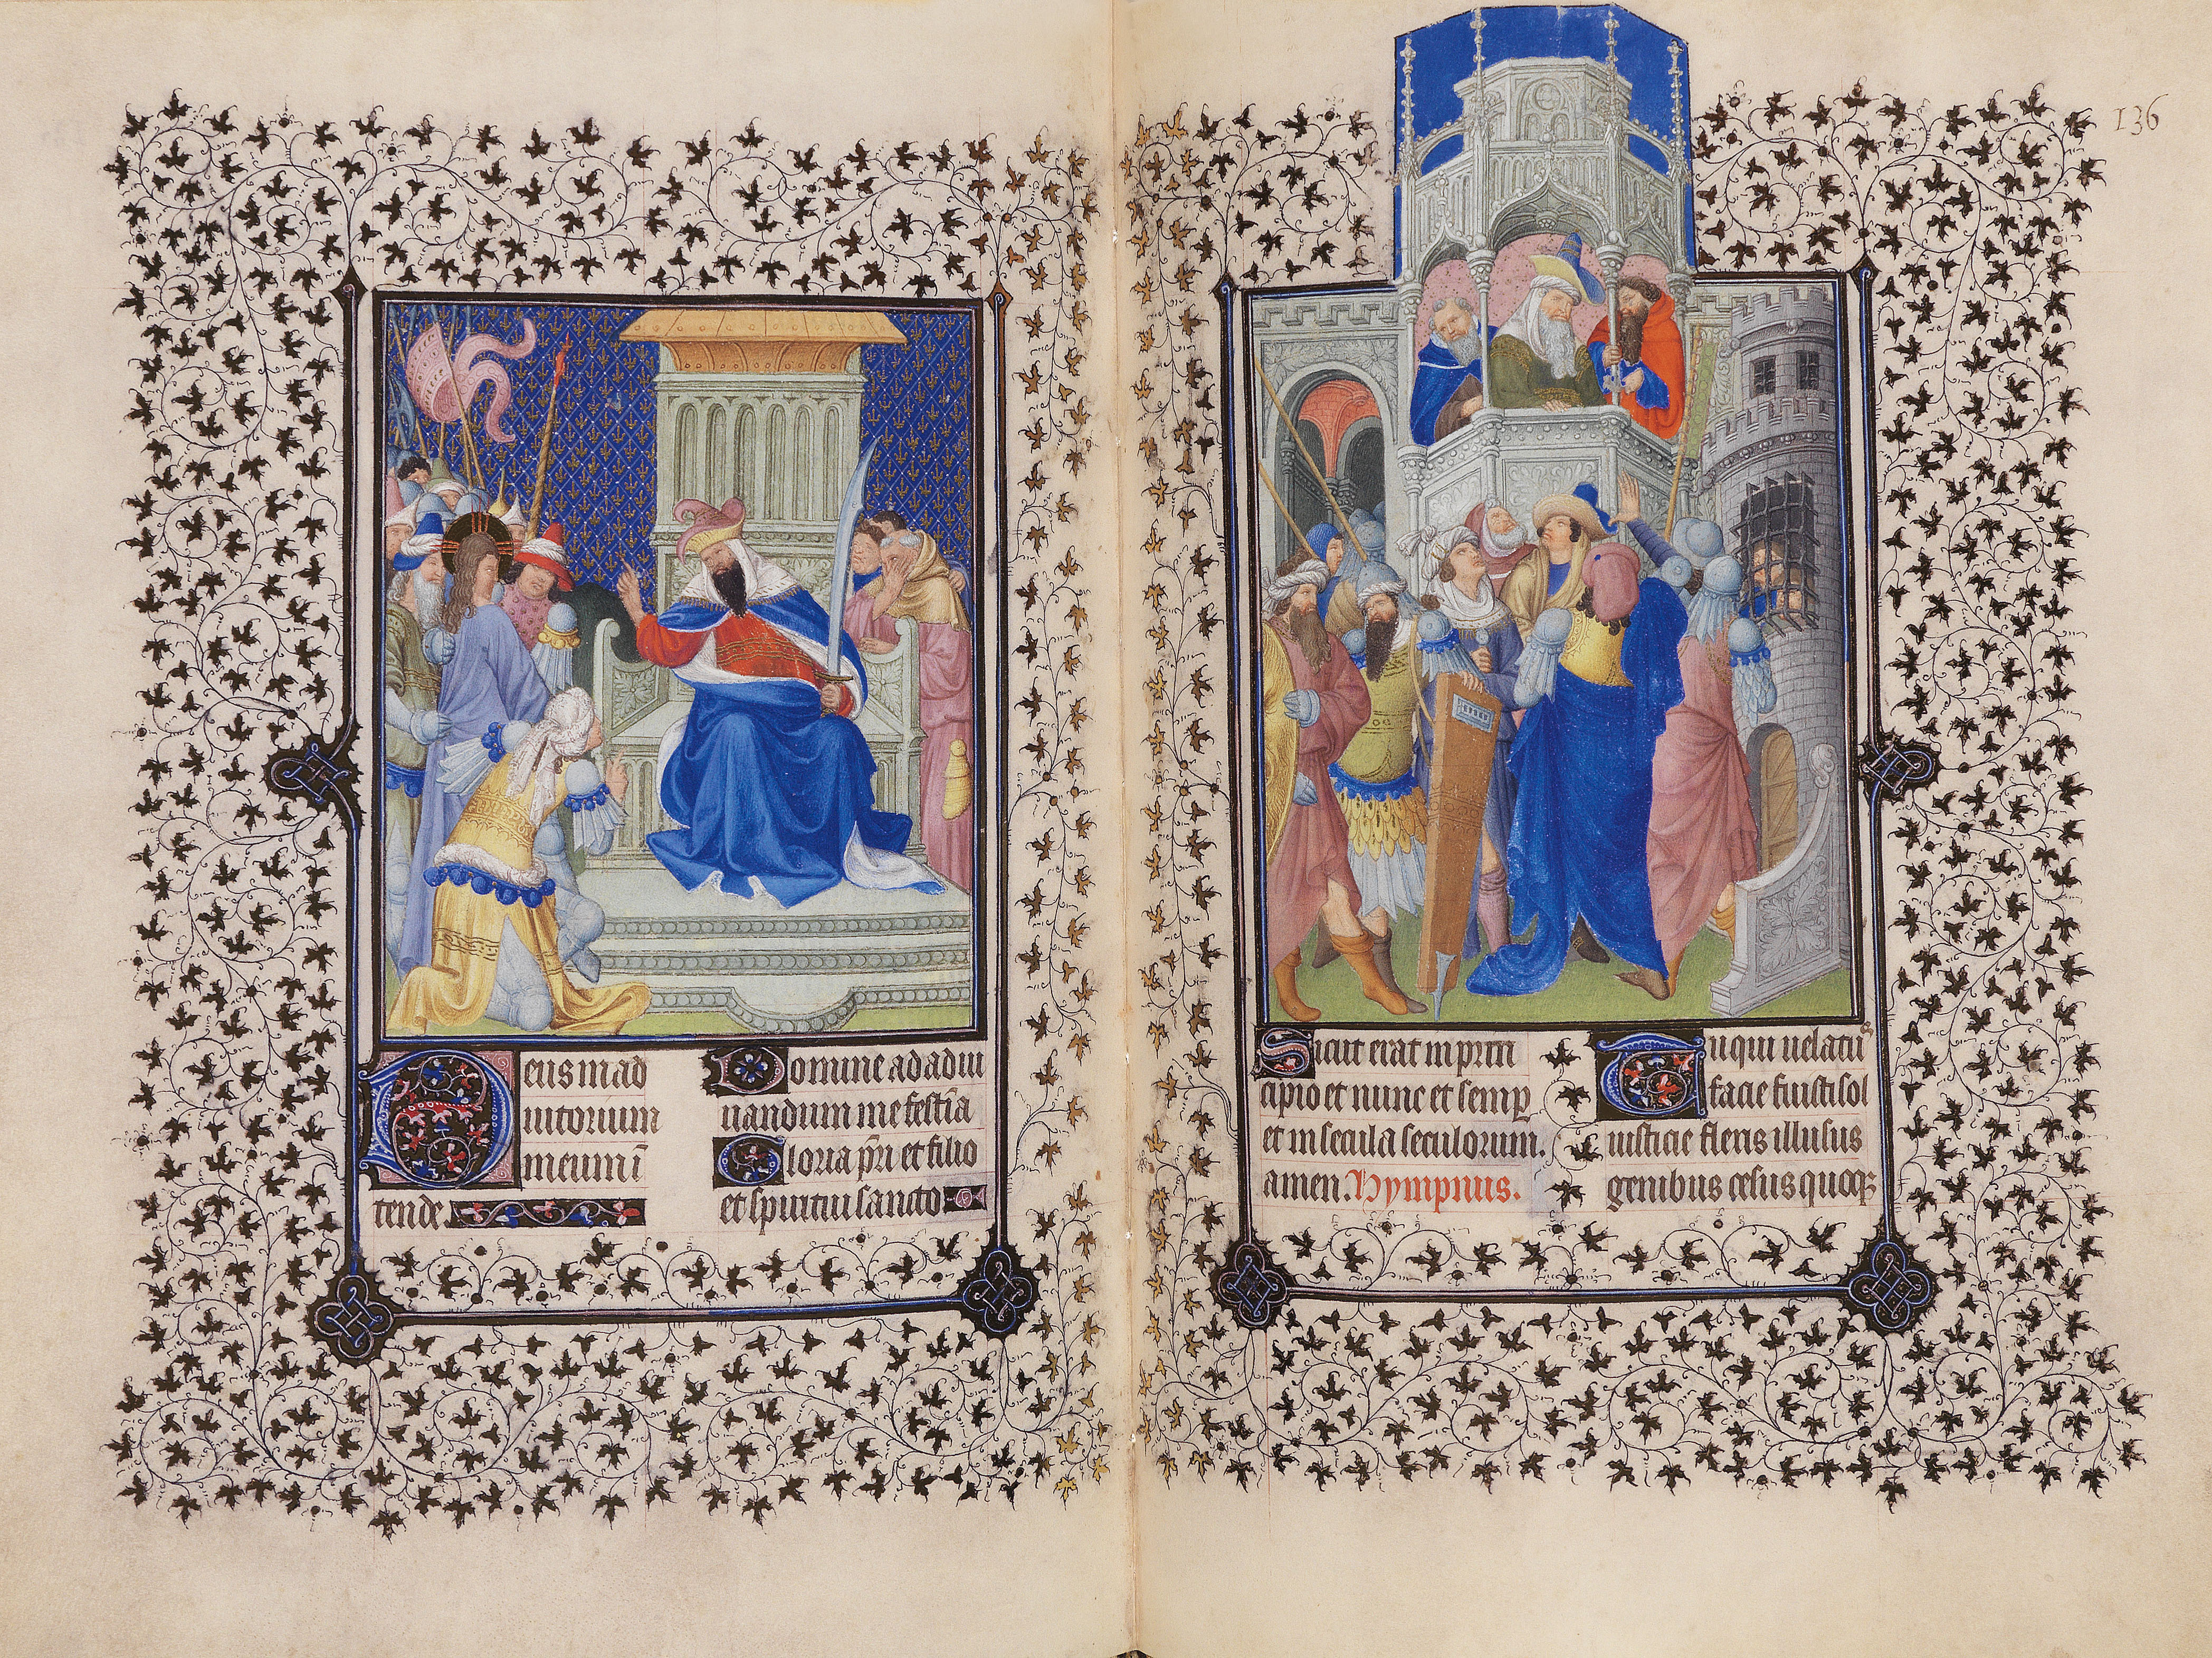 Deus in ad
iutorium
meum ī
tende.
Domine ad adiu
uandum me festīa
Gloria pri et filio
et spiritui sancto
136
Sicut erat in prin
cipio et nunc et semp
et in secula seculorum.
amen. Hympnus.
Tu qui uelatus
facie fuisti sol
iusticie flexis illusus
genibus cesus quoqȝ